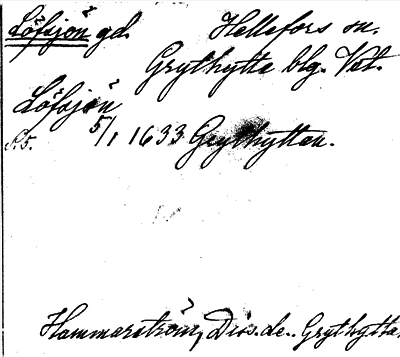 Löfsjön gd. Hellefors sn.
Grythytte blg. Vstl.
Löfsjön
S. 5. 5/1 1633 Grythyttan.
Hammarström, Diss. de.. Grythytta